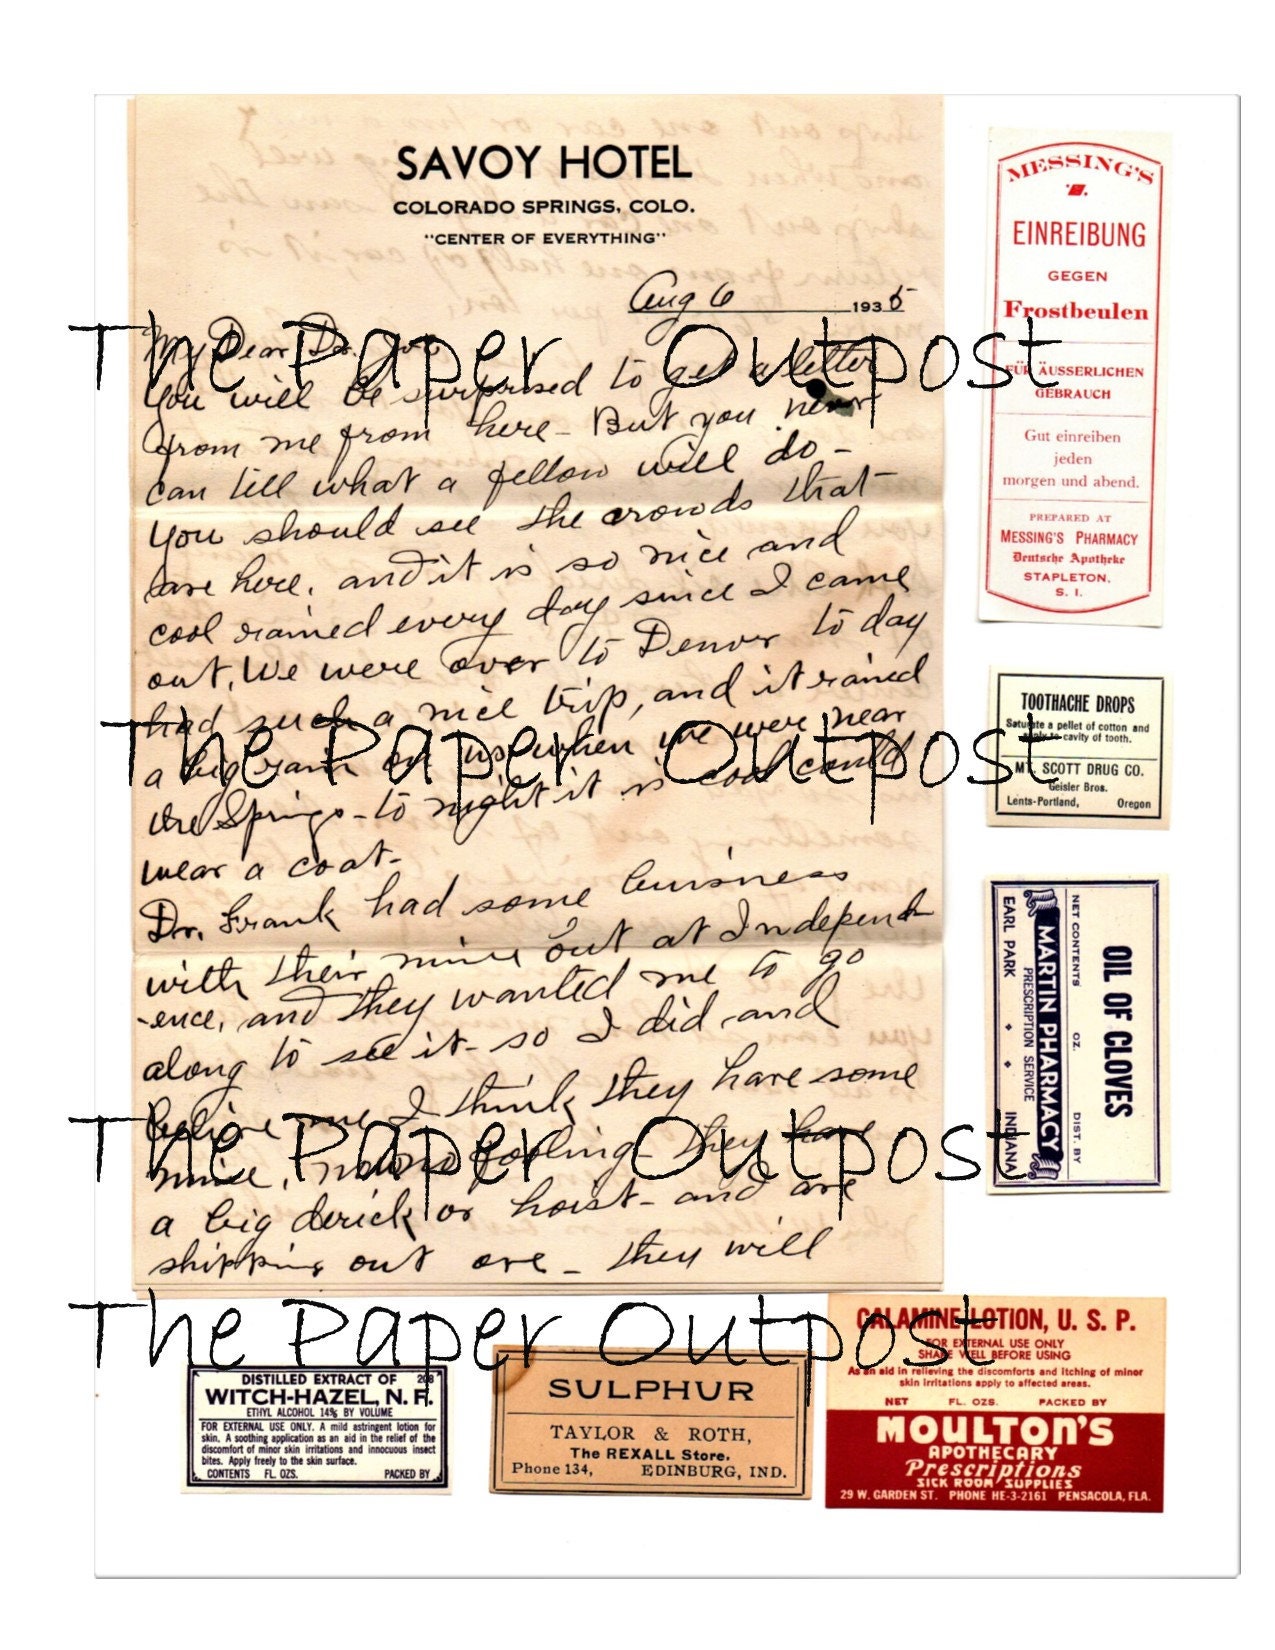 SAVOY HOTEL
COLORADO SPRINGS, COLO.
"CENTER OF EVERYTHING"
Aug 6 1935
My Dear Dr.
You will be surprised to get a letter
from me from here - But you never
can tell what a fellow will do -
You should see the crowds that
are here, and it is so nice and
cool rained every day since I came
out. We were over to Denver to day
had such a nice trip, and it rained
a big rain on us when we were near
the Springs - to night it is cool could
wear a coat -
Dr. Frank had some buisness
with their mine out at Independ
-ence, and they wanted me to go
along to see it - so I did and
believe me I think they have some
mine, no fooling - they have
a big derick or hoist - and are
shipping out ore - they will
The Paper Outpost
The Paper Outpost
The Paper Outpost
The Paper Outpost
MESSING'S
EINREIBUNG
GEGEN
Frostbeulen
FÜR ÄUSSERLICHEN
GEBRAUCH
Gut einreiben
jeden
morgen und abend.
PREPARED AT
MESSING'S PHARMACY
Deutsche Apotheke
STAPLETON,
S. I.
TOOTHACHE DROPS
Saturate a pellet of cotton and
apply to cavity of tooth.
MT. SCOTT DRUG CO.
Geisler Bros.
Lents-Portland, Oregon
OIL OF CLOVES
NET CONTENTS OZ. DIST. BY
MARTIN PHARMACY
PRESCRIPTION SERVICE
EARL PARK INDIANA
DISTILLED EXTRACT OF 208
WITCH-HAZEL, N. F.
ETHYL ALCOHOL 14% BY VOLUME
FOR EXTERNAL USE ONLY. A mild astringent lotion for
skin. A soothing application as an aid in the relief of the
discomfort of minor skin irritations and innocuous insect
bites. Apply freely to the skin surface.
CONTENTS FL. OZS. PACKED BY
SULPHUR
TAYLOR & ROTH,
The REXALL Store.
Phone 134, EDINBURG, IND.
CALAMINE LOTION, U. S. P.
FOR EXTERNAL USE ONLY
SHAKE WELL BEFORE USING
As an aid in relieving the discomforts and itching of minor
skin irritations apply to affected areas.
NET FL. OZS. PACKED BY
MOULTON'S
APOTHECARY
Prescriptions
SICK ROOM SUPPLIES
29 W. GARDEN ST. PHONE HE-3-2161 PENSACOLA, FLA.